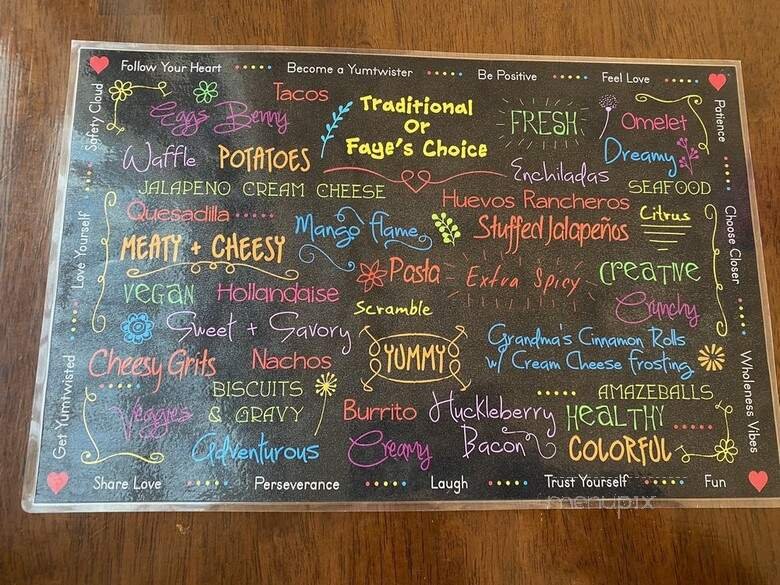 Follow Your Heart
Become a Yumtwister
Be Positive
Feel Love
Safety Cloud
Love Yourself
Get Yumtwisted
Patience
Choose Closer
Wholeness Vibes
Eggs Benny
Tacos
Traditional
Or
Faye's Choice
FRESH
Omelet
Waffle
POTATOES
Dreamy
Enchiladas
JALAPENO CREAM CHEESE
SEAFOOD
Huevos Rancheros
Quesadilla
Mango flame
Stuffed Jalapeños
Citrus
MEATY + CHEESY
Pasta
Extra Spicy
CREATIVE
VEGAN
Hollandaise
Scramble
Crunchy
Sweet + Savory
YUMMY
Grandma's Cinnamon Rolls
w/ Cream Cheese frosting
Cheesy Grits
Nachos
BISCUITS
& GRAVY
AMAZEBALLS
Veggies
Burrito
Huckleberry
Bacon
HEALTHY
Adventurous
Creamy
COLORFUL
Share Love
Perseverance
Laugh
Trust Yourself
Fun
menupix